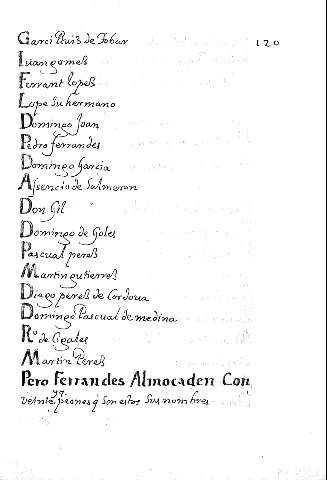 Garci Ruiz de Tobar
120
Iuan gomeß
Ferrant lopeß
Lope su hermano
Domingo Joan
Pedro ferrandes
Domingo Garcia
Assencio de Salmaron
Don Gil
Domingo de Goles
Pascual pereß
Martin gutierreß
Diago pereß de Cordoua
Domingo Pascual de medina
Rº de Cigales
Martin Pereß
Pero Ferrandes Almocaden Con
veinte peones q son estos sus nombres